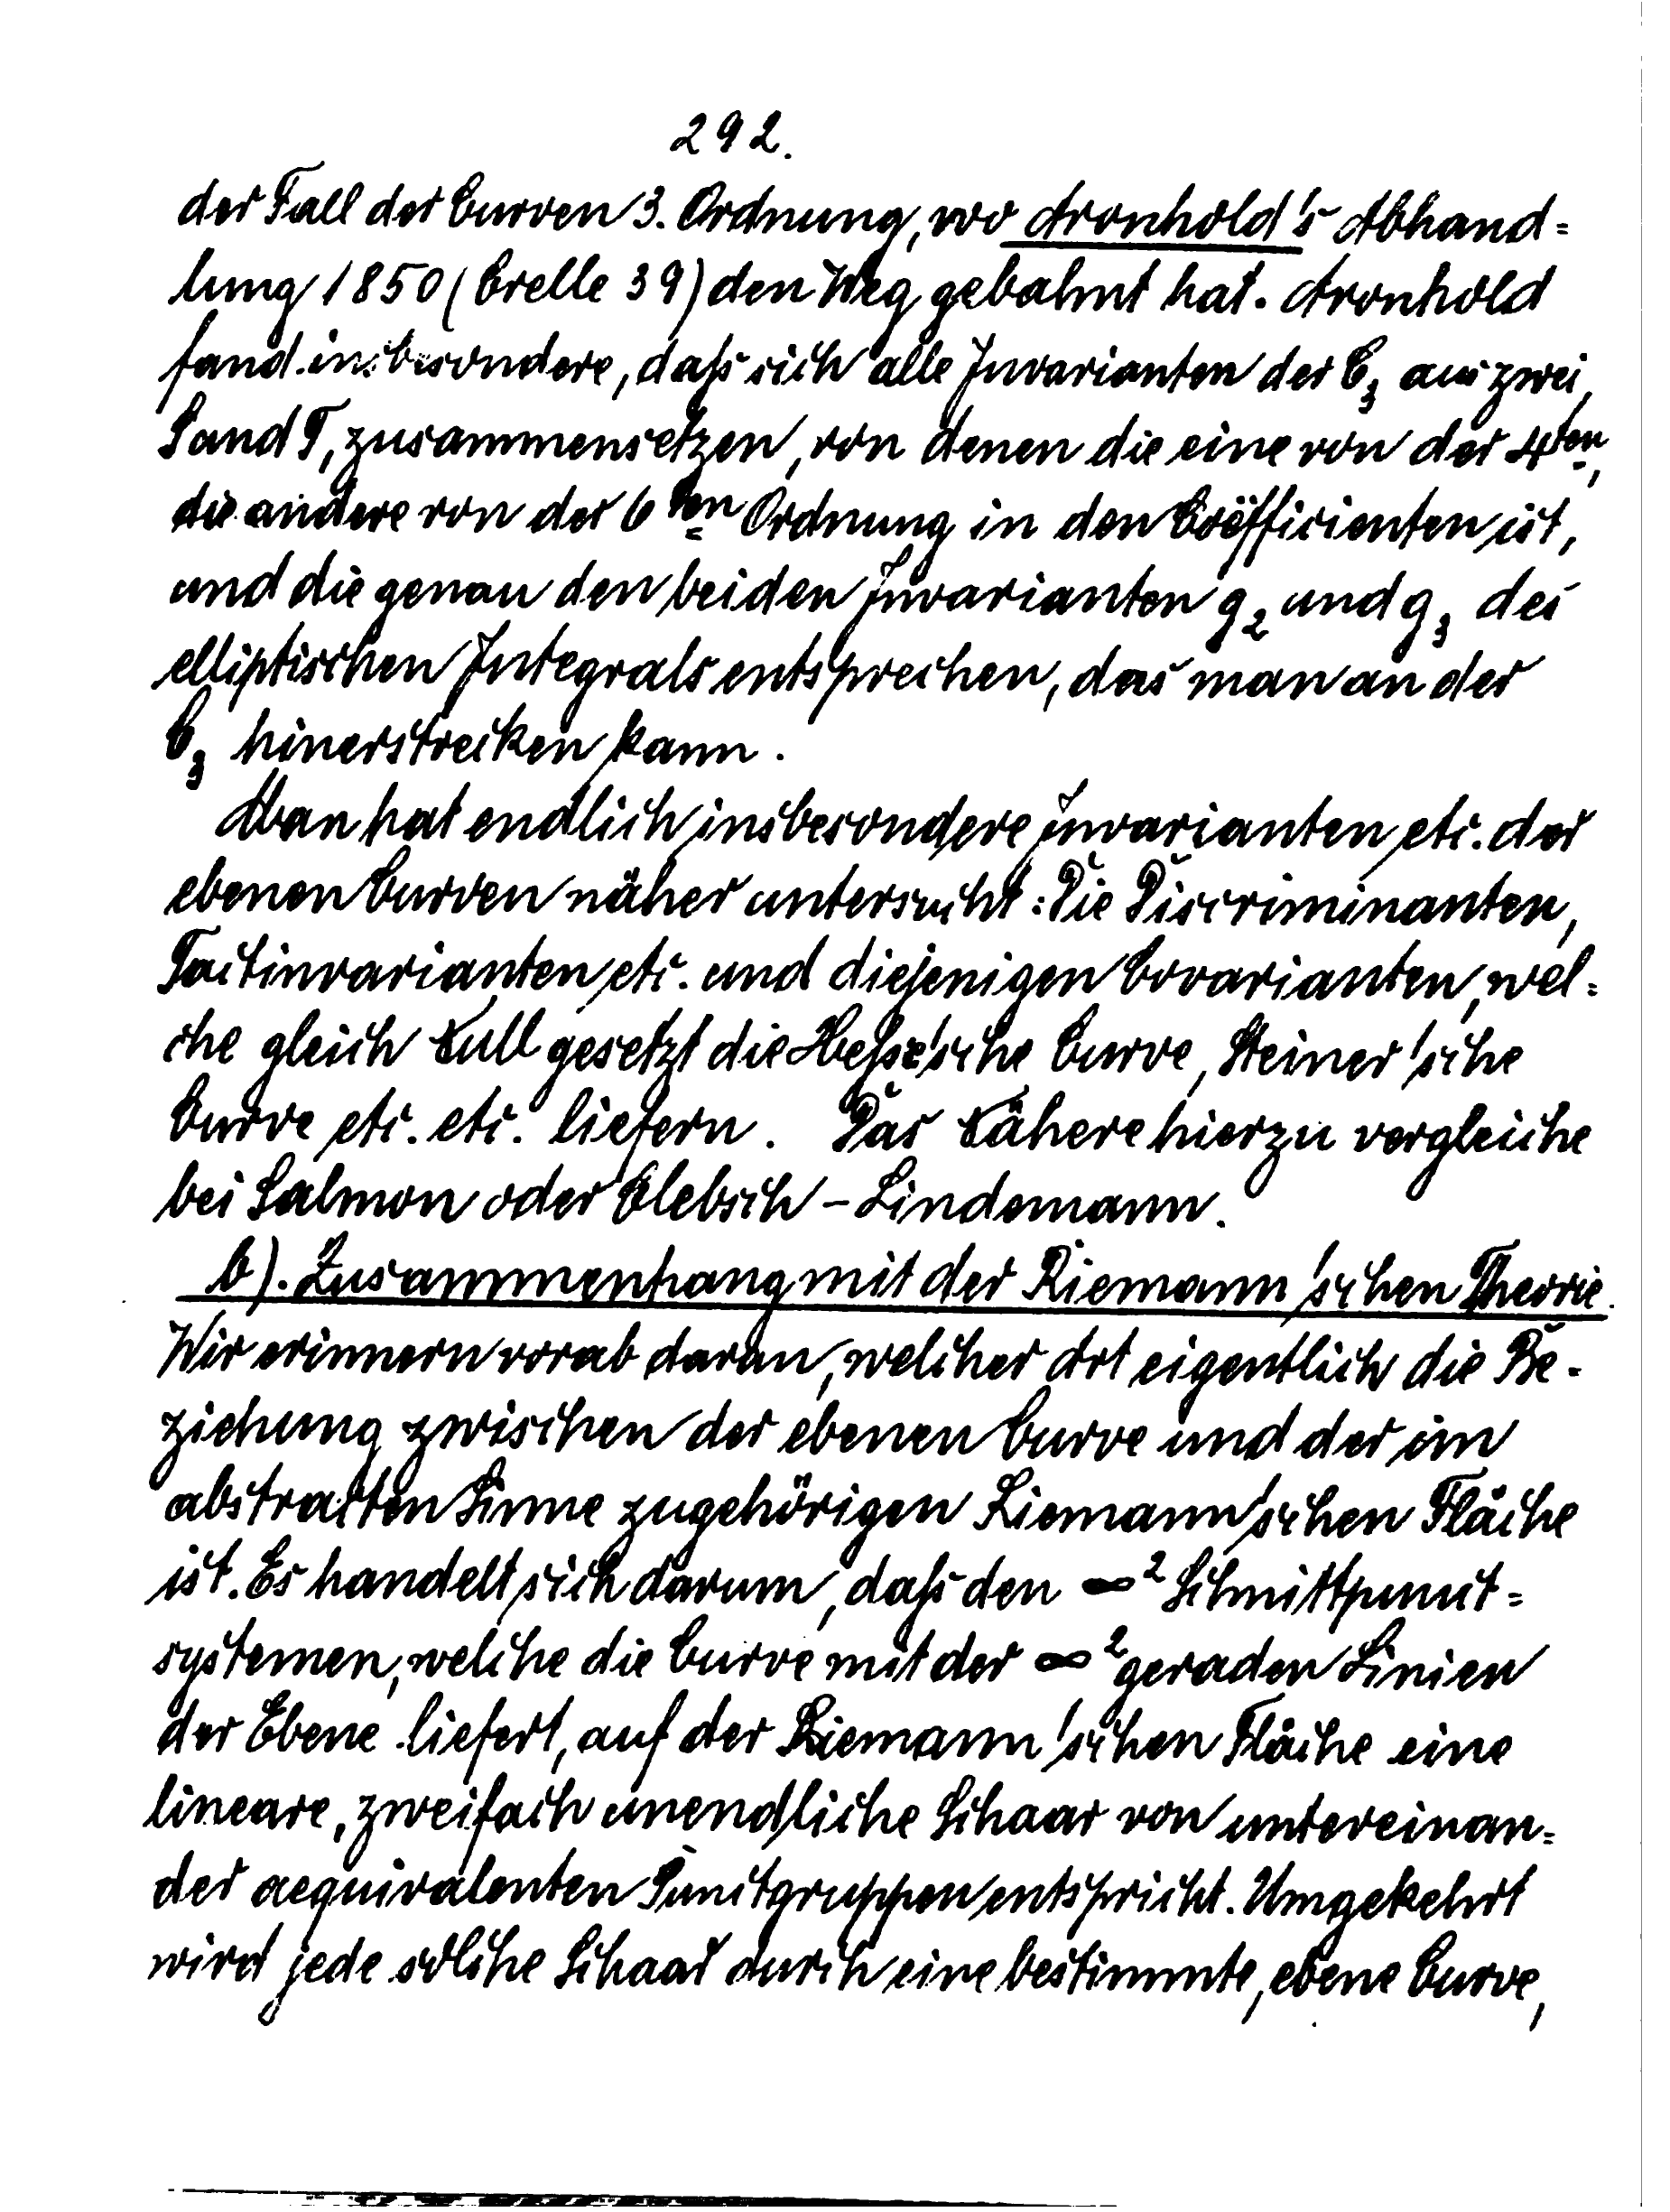 292.
der Fall der Curven 3. Ordnung, wo Aronhold's Abhand=
lung 1850 (Crelle 39) den Weg gebahnt hat. Aronhold
fand insbesondere, daß sich alle Invarianten der C₃ aus zwei,
S and T, zusammensetzen, von denen die eine von der 4ten,
die andere von der 6ten Ordnung in den Coëfficienten ist,
und die genau den beiden Invarianten g₂ und g₃ des
elliptischen Integrals entsprechen, das man an der
C₃ hinerstrecken kann.
Man hat endlich insbesondere Invarianten etc. der
ebenen Curven näher untersucht: Die Discriminanten,
Tactinvarianten etc. und diejenigen Covarianten, wel=
che gleich Null gesetzt die Heße'sche Curve, Steiner'sche
Curve etc. etc. liefern. Das Nähere hierzu vergleiche
bei Salmon oder Clebsch - Lindemann.
b). Zusammenhang mit der Riemann'schen Theorie.
Wir erinnern vorab daran, welcher Art eigentlich die Be-
ziehung zwischen der ebenen Curve und der im
abstracten Sinne zugehörigen Riemann'schen Fläche
ist. Es handelt sich darum, daß den ∞² Schnittpunct=
systemen, welche die Curve mit der ∞² geraden Linien
der Ebene liefert, auf der Riemann'schen Fläche eine
lineare, zweifach unendliche Schaar von untereinan=
der aequivalenten Punctgruppen entspricht. Umgekehrt
wird jede solche Schaar durch eine bestimmte, ebene Curve,